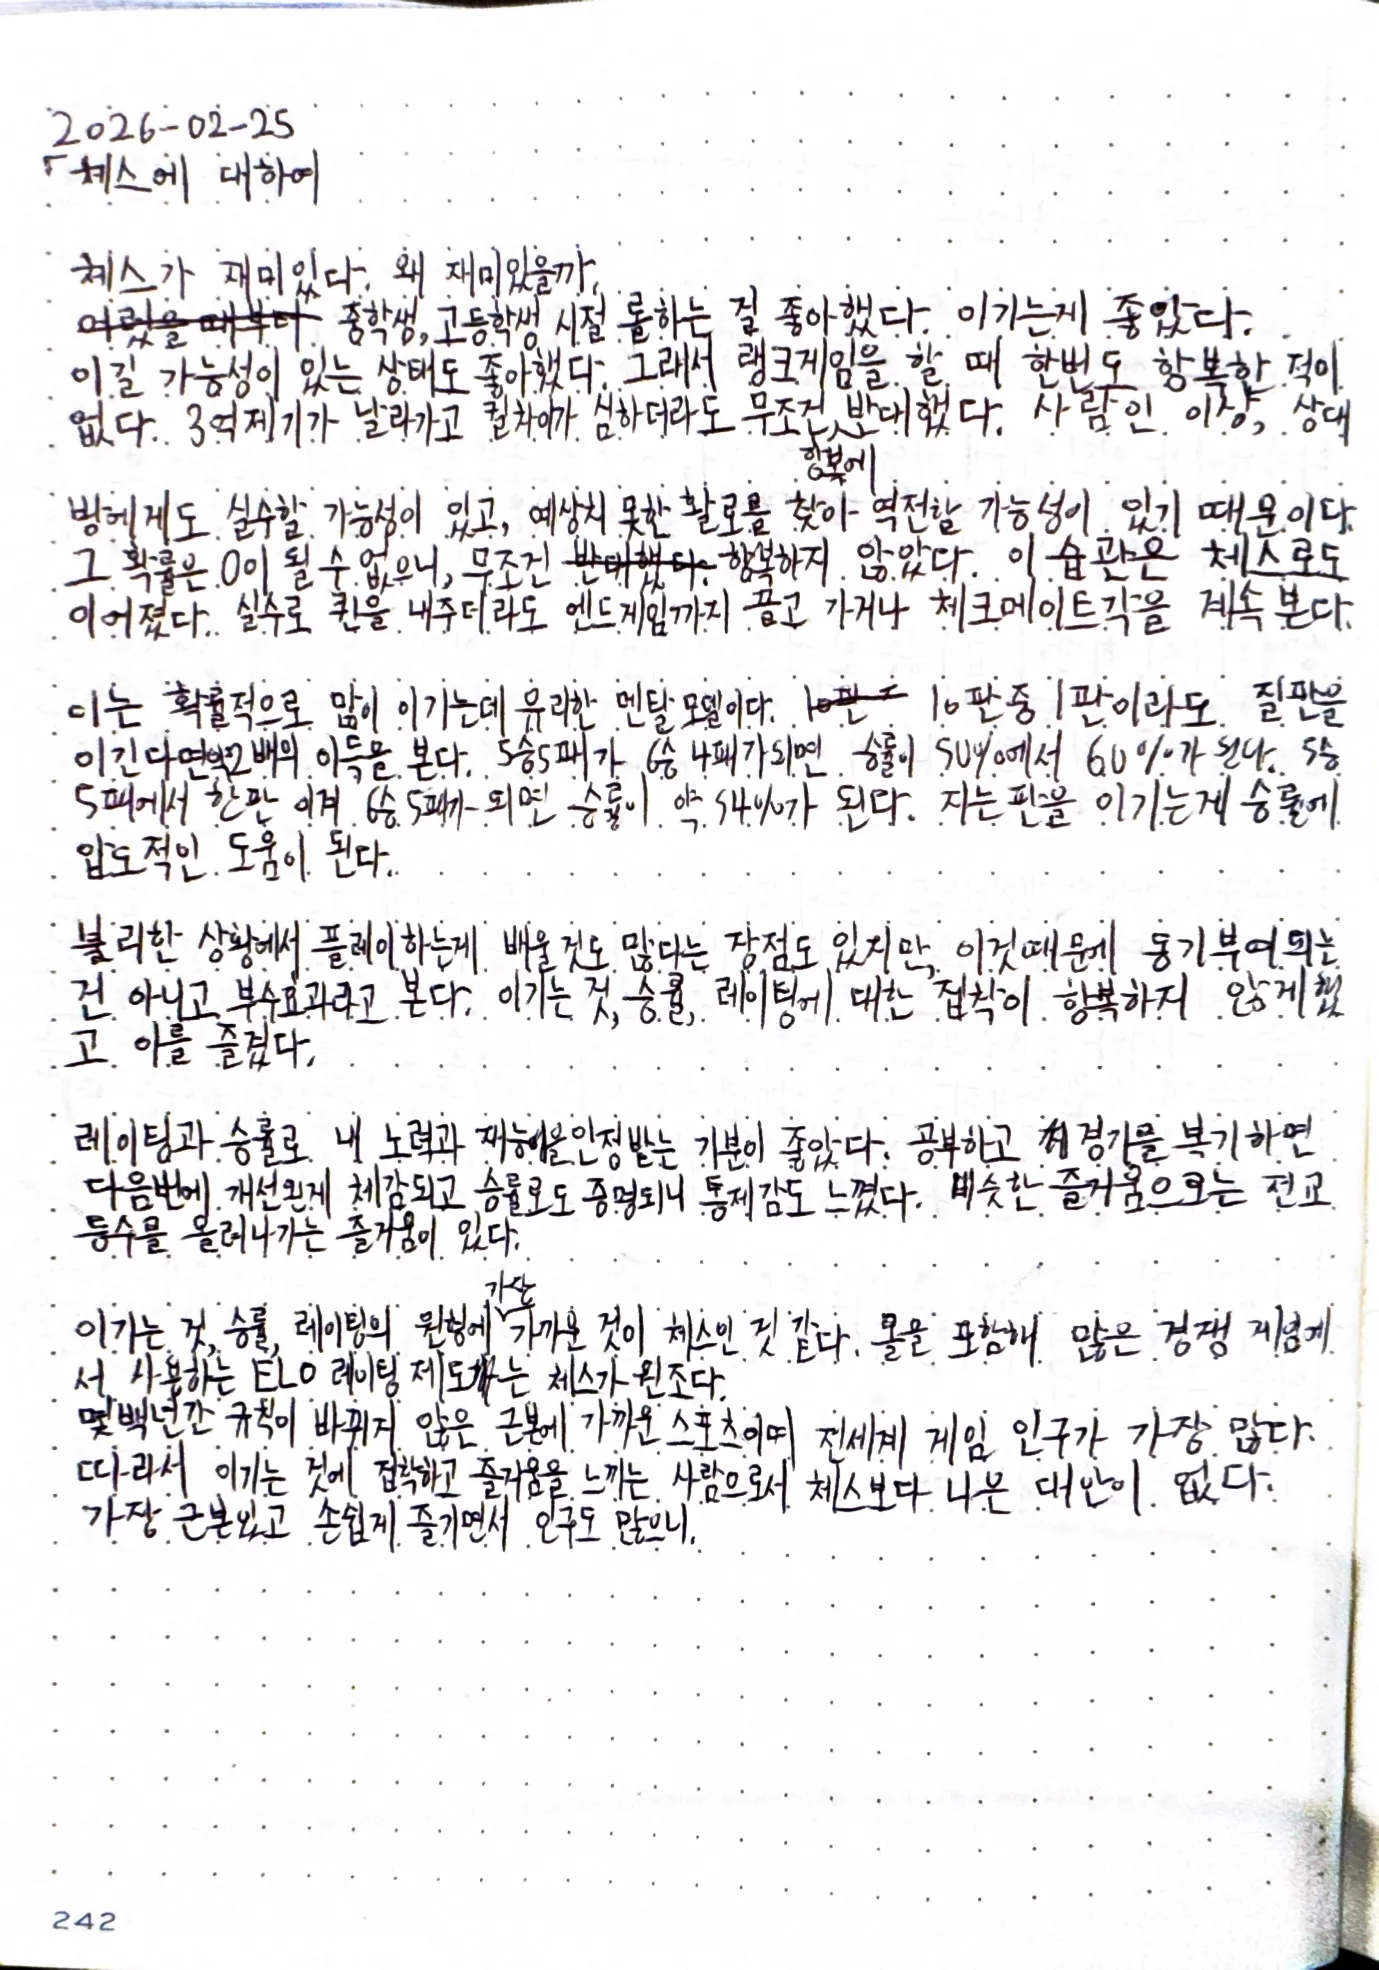 2026-02-25
「체스에 대하여
체스가 재미있다. 왜 재미있을까.
어렸을 때부터 중학생, 고등학생 시절 롤하는 걸 좋아했다. 이기는게 좋았다.
이길 가능성이 있는 상태도 좋아했다. 그래서 랭크게임을 할 때 한번도 항복한 적이
없다. 3억제기가 날라가고 킬차이가 심하더라도 무조건 항복에 반대했다. 사람인 이상, 상대
방에게도 실수할 가능성이 있고, 예상치 못한 활로를 찾아 역전할 가능성이 있기 때문이다.
그 확률은 0이 될 수 없으니, 무조건 반대했다. 항복하지 않았다. 이 습관은 체스로도
이어졌다. 실수로 퀸을 내주더라도 엔드게임까지 끌고 가거나 체크메이트각을 계속 본다.
이는 확률적으로 많이 이기는데 유리한 멘탈 모델이다. 10판 10판중 1판이라도 질판을
이긴다면 2배의 이득을 본다. 5승5패가 6승 4패가되면 승률이 50%에서 60%가 된다. 5승
5패에서 한판 이겨 6승 5패가 되면 승률이 약 54%가 된다. 지는 판을 이기는게 승률에
압도적인 도움이 된다.
불리한 상황에서 플레이하는게 배울것도 많다는 장점도 있지만, 이것때문에 동기부여되는
건 아니고 부수효과라고 본다. 이기는 것, 승률, 레이팅에 대한 집착이 항복하지 않게 했
고 이를 즐겼다.
레이팅과 승률로 내 노력과 재능을 인정받는 기분이 좋았다. 공부하고 경기를 복기하면
다음번에 개선된게 체감되고 승률로도 증명되니 통제감도 느꼈다. 비슷한 즐거움으로는 전교
등수를 올려나가는 즐거움이 있다.
이기는 것, 승률, 레이팅의 원형에 가장 가까운 것이 체스인 것 같다. 롤을 포함해 많은 경쟁 게임에
서 사용하는 ELO 레이팅 제도는 체스가 원조다.
몇백년간 규칙이 바뀌지 않은 근본에 가까운 스포츠이며 전세계 게임 인구가 가장 많다.
따라서 이기는 것에 집착하고 즐거움을 느끼는 사람으로서 체스보다 나은 대안이 없다.
가장 근본있고 손쉽게 즐기면서 인구도 많으니.
242